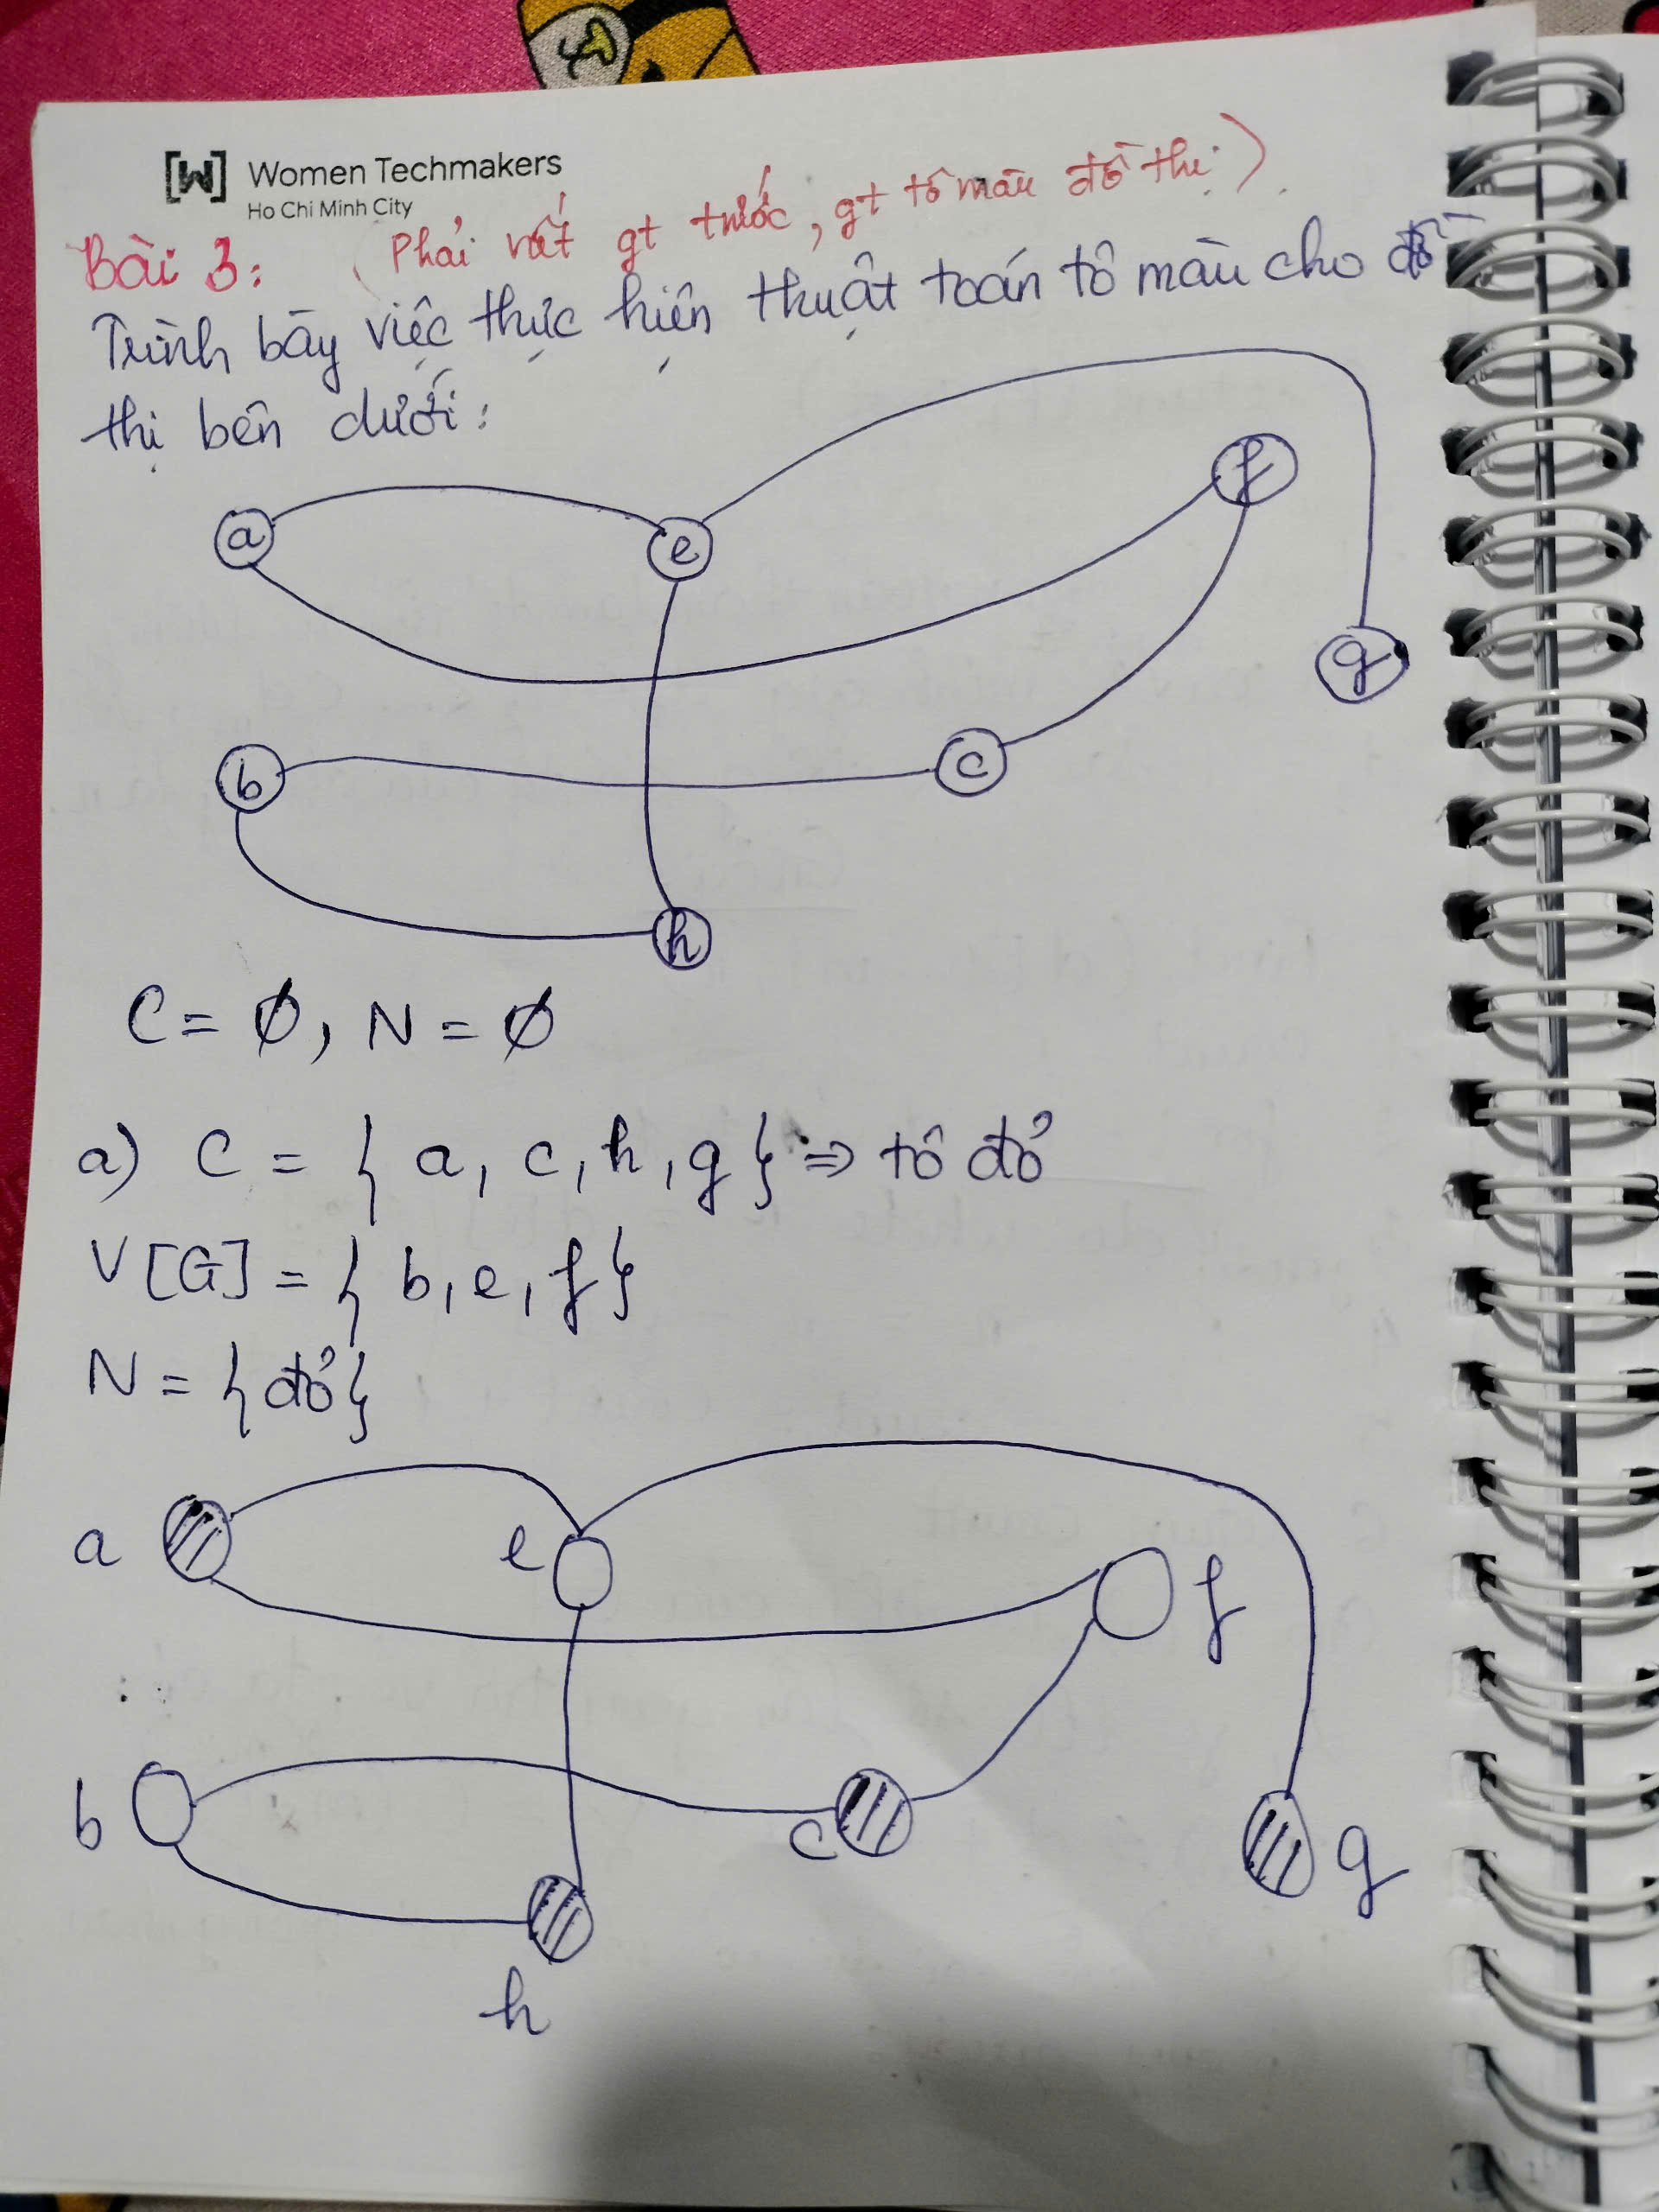 [W] Women Techmakers
Ho Chi Minh City
(Phải viết gt trước, gt tô màu đồ thị)
Bài 3:
Trình bày việc thực hiện thuật toán tô màu cho đồ
thị bên dưới:
a e f
g
b c
h
C = ∅, N = ∅
a) C = { a, c, h, g } => tô đỏ
V[G] = { b, e, f }
N = { đỏ }
a e f
b c g
h